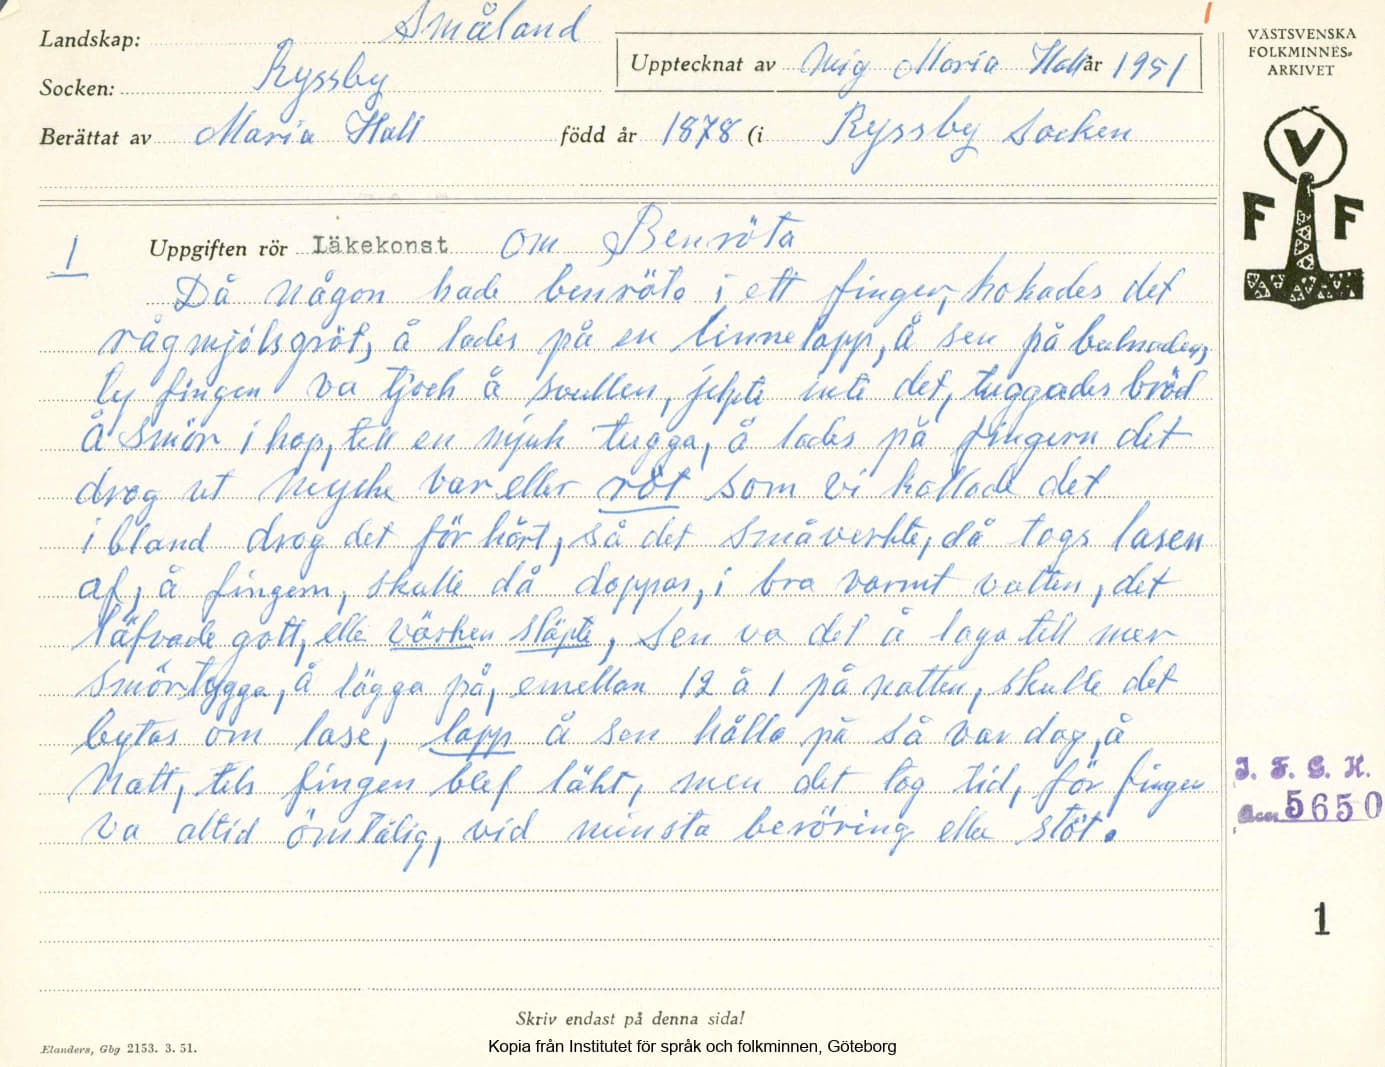 Landskap: Småland
Socken: Ryssby
Upptecknat av Mig Maria Hall år 1951
Berättat av Maria Hall född år 1878 (i Ryssby Socken
VÄSTSVENSKA
FOLKMINNES-
ARKIVET
V
F F
1 Uppgiften rör Läkekonst om Benröta
Då någon hade benröta i ett finger, kokades det
rågmjölsgröt, å lades på en linnelapp, å sen på bulnaden,
ty fingen va tjock å svullen, jelpte inte det, tuggades bröd
å smör i hop, till en mjuk tugga, å lades på fingern det
drog ut mycke var eller röt som vi kallade det
i bland drog det för hårt, så det småverkte, då togs lasen
af, å fingern, skulle då doppas, i bra varmt vatten, det
läfvade gott, elle värken släpte, sen va det å laga till mer
smörtugga, å lägga på, emellan 12 å 1 på natten, skulle det
bytas om lase, lapp å sen hålla på så var dag, å
natt, tils fingen blef läkt, men det tog tid, för fingen
va altid ömtålig, vid minsta beröring elle stöt.
I. F. G. H.
Acc 5650
1
Skriv endast på denna sida!
Elanders, Gbg 2153. 3. 51.
Kopia från Institutet för språk och folkminnen, Göteborg